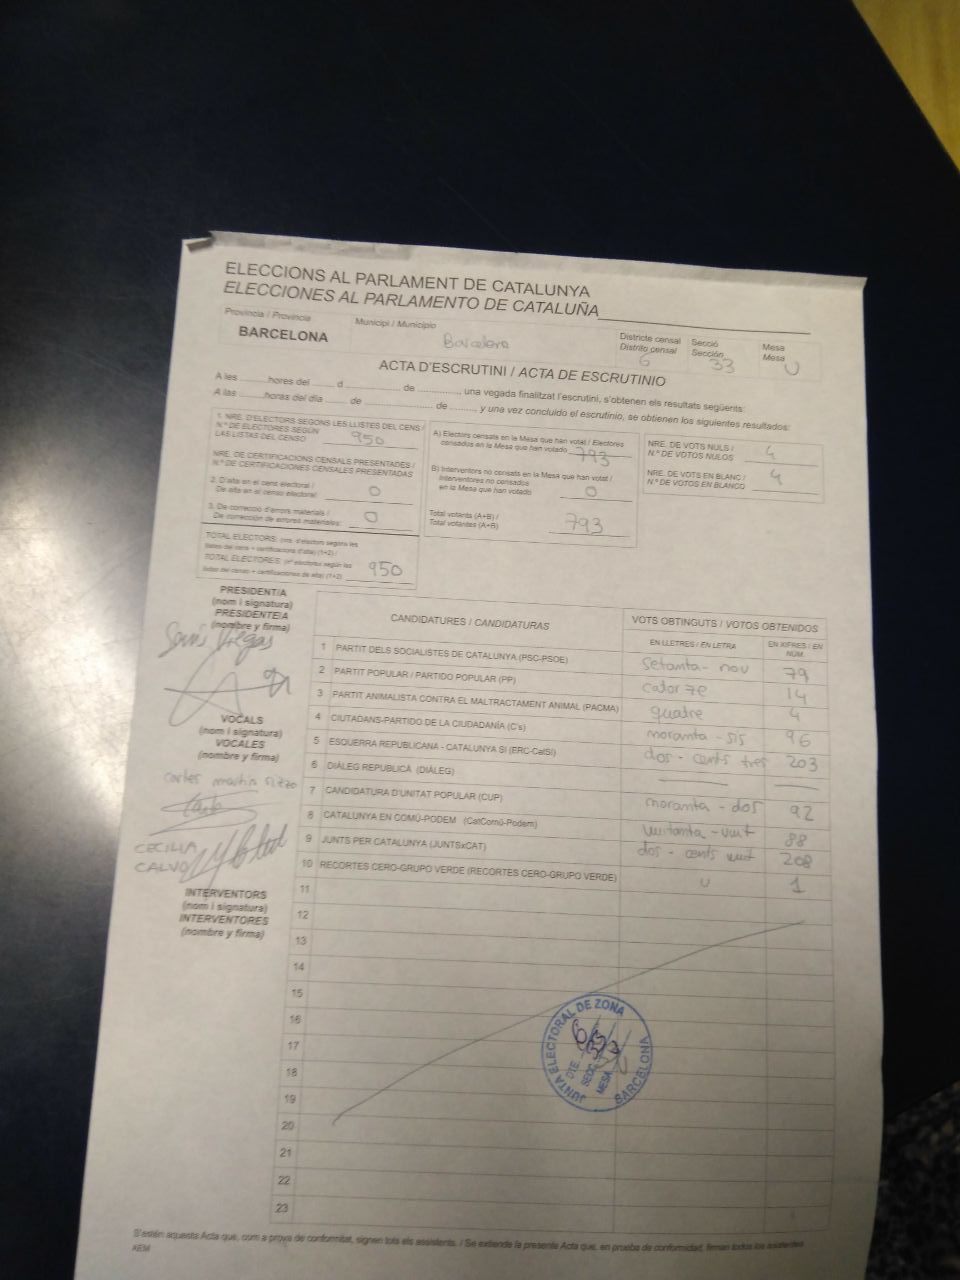 ELECCIONS AL PARLAMENT DE CATALUNYA
ELECCIONES AL PARLAMENTO DE CATALUÑA
Provincia / Provincia
BARCELONA
Municipi / Municipio
Barcelona
Districte censal
Distrito censal
6
Secció
Sección
33
Mesa
Mesa
U
ACTA D'ESCRUTINI / ACTA DE ESCRUTINIO
A les ......... hores del ...... d .................. de .............., una vegada finalitzat l'escrutini, s'obtenen els resultats següents:
A las ......... horas del día ...... de .................. de ........., y una vez concluido el escrutinio, se obtienen los siguientes resultados:
1. NRE. D'ELECTORS SEGONS LES LLISTES DEL CENS /
N.º DE ELECTORES SEGÚN
LAS LISTAS DEL CENSO
950
NRE. DE CERTIFICACIONS CENSALS PRESENTADES /
N.º DE CERTIFICACIONES CENSALES PRESENTADAS
2. D'alta en el cens electoral /
De alta en el censo electoral:
0
3. De correcció d'errors materials /
De corrección de errores materiales:
0
TOTAL ELECTORS: (nre. d'electors segons les
llistes del cens + certificacions d'alta) (1+2) /
TOTAL ELECTORES: (nº electores según las
listas del censo + certificaciones de alta) (1+2)
950
A) Electors censats en la Mesa que han votat / Electores
censados en la Mesa que han votado
793
B) Interventors no censats en la Mesa que han votat /
Interventores no censados
en la Mesa que han votado
0
Total votants (A+B) /
Total votantes (A+B)
793
NRE. DE VOTS NULS /
N.º DE VOTOS NULOS
4
NRE. DE VOTS EN BLANC /
N.º DE VOTOS EN BLANCO
4
PRESIDENT/A
(nom i signatura)
PRESIDENTE/A
(nombre y firma)
VOCALS
(nom i signatura)
VOCALES
(nombre y firma)
carles martin rizzo
CECILIA
CALVO
INTERVENTORS
(nom i signatura)
INTERVENTORES
(nombre y firma)
CANDIDATURES / CANDIDATURAS
VOTS OBTINGUTS / VOTOS OBTENIDOS
EN LLETRES / EN LETRA
EN XIFRES / EN NÚM.
1 PARTIT DELS SOCIALISTES DE CATALUNYA (PSC-PSOE) setanta-nou 79
2 PARTIT POPULAR / PARTIDO POPULAR (PP) catorze 14
3 PARTIT ANIMALISTA CONTRA EL MALTRACTAMENT ANIMAL (PACMA) quatre 4
4 CIUTADANS-PARTIDO DE LA CIUDADANÍA (C's) noranta-sis 96
5 ESQUERRA REPUBLICANA - CATALUNYA SÍ (ERC-CatSÍ) dos-cents tres 203
6 DIÀLEG REPUBLICÀ (DIÀLEG)
7 CANDIDATURA D'UNITAT POPULAR (CUP) noranta-dos 92
8 CATALUNYA EN COMÚ-PODEM (CatComú-Podem) vuitanta-vuit 88
9 JUNTS PER CATALUNYA (JUNTSxCAT) dos-cents vuit 208
10 RECORTES CERO-GRUPO VERDE (RECORTES CERO-GRUPO VERDE) u 1
11
12
13
14
15
16
17
18
19
20
21
22
23
JUNTA ELECTORAL DE ZONA
DTE.
SECC.
MESA
BARCELONA
S'estén aquesta Acta que, com a prova de conformitat, signen tots els assistents. / Se extiende la presente Acta que, en prueba de conformidad, firman todos los asistentes